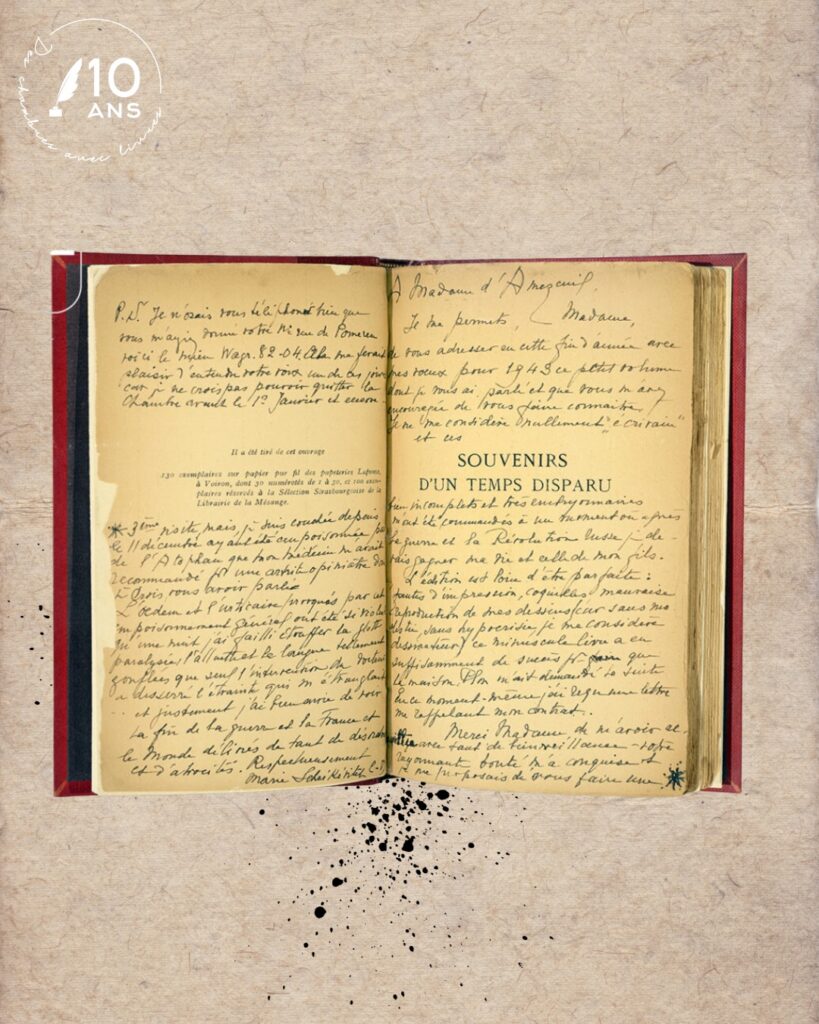 10
ANS
Des chambres avec livres
P.S. Je n'osais vous téléphoner bien que
vous m'ayiez donné votre N° rue de Pomereu
voici le mien Wagr. 82-04. Cela me ferait
plaisir d'entendre votre voix un de ces jours
car je ne crois pas pouvoir quitter la
Chambre avant le 1er Janvier et encore
Il a été tiré de cet ouvrage
130 exemplaires sur papier pur fil des papeteries Lafuma,
à Voiron, dont 30 numérotés de 1 à 30, et 100 exem-
plaires réservés à la Sélection Strasbourgeoise de la
Librairie de la Mésange.
* 3ème visite, mais je suis couchée depuis
le 11 décembre ayant été empoisonnée par
de l'Atophan que mon médecin m'avait
recommandé pr une arthrite opiniâtre
je crois vous avoir parlé
L'œdème et l'urticaire provoqués par cet
empoisonnement général ont été si violents
qu'une nuit j'ai failli étouffer la glotte
paralysée, l'alluette et la langue tellement
gonflées que seul l'intervention du docteur
a desserré l'étreinte qui m'étranglait
.. et justement j'ai bien envie de voir
la fin de la guerre et la France et
le Monde délivrés de tant de désordre
et d'atrocités. Respectueusement
Marie Scheikévitch
A Madame d'Amezeuil,
Je me permets, Madame,
de vous adresser en cette fin d'année avec
mes vœux pour 1943 ce petit volume
dont je vous ai parlé et que vous m'avez
encouragée de vous faire connaître.
Je ne me considère nullement "écrivain"
et ces
SOUVENIRS
D'UN TEMPS DISPARU
bien incomplets et très embryonnaires
m'ont été commandés à un moment où après
la guerre et la Révolution russe je de-
vais gagner ma vie et celle de mon fils.
L'édition est loin d'être parfaite :
fautes d'impression, coquilles, mauvaise
reproduction de mes dessins (car sans mo-
destie, sans hypocrisie je me considère
dessinateur) ce minuscule livre a eu
suffisamment de succès pr que
la maison Plon m'ait demandé la suite
En ce moment-même j'ai reçu une lettre
me rappelant mon contrat..
Merci Madame, de m'avoir ac-
cueillie avec tant de bienveillance - votre
rayonnante bonté m'a conquise et
je me proposais de vous faire une *